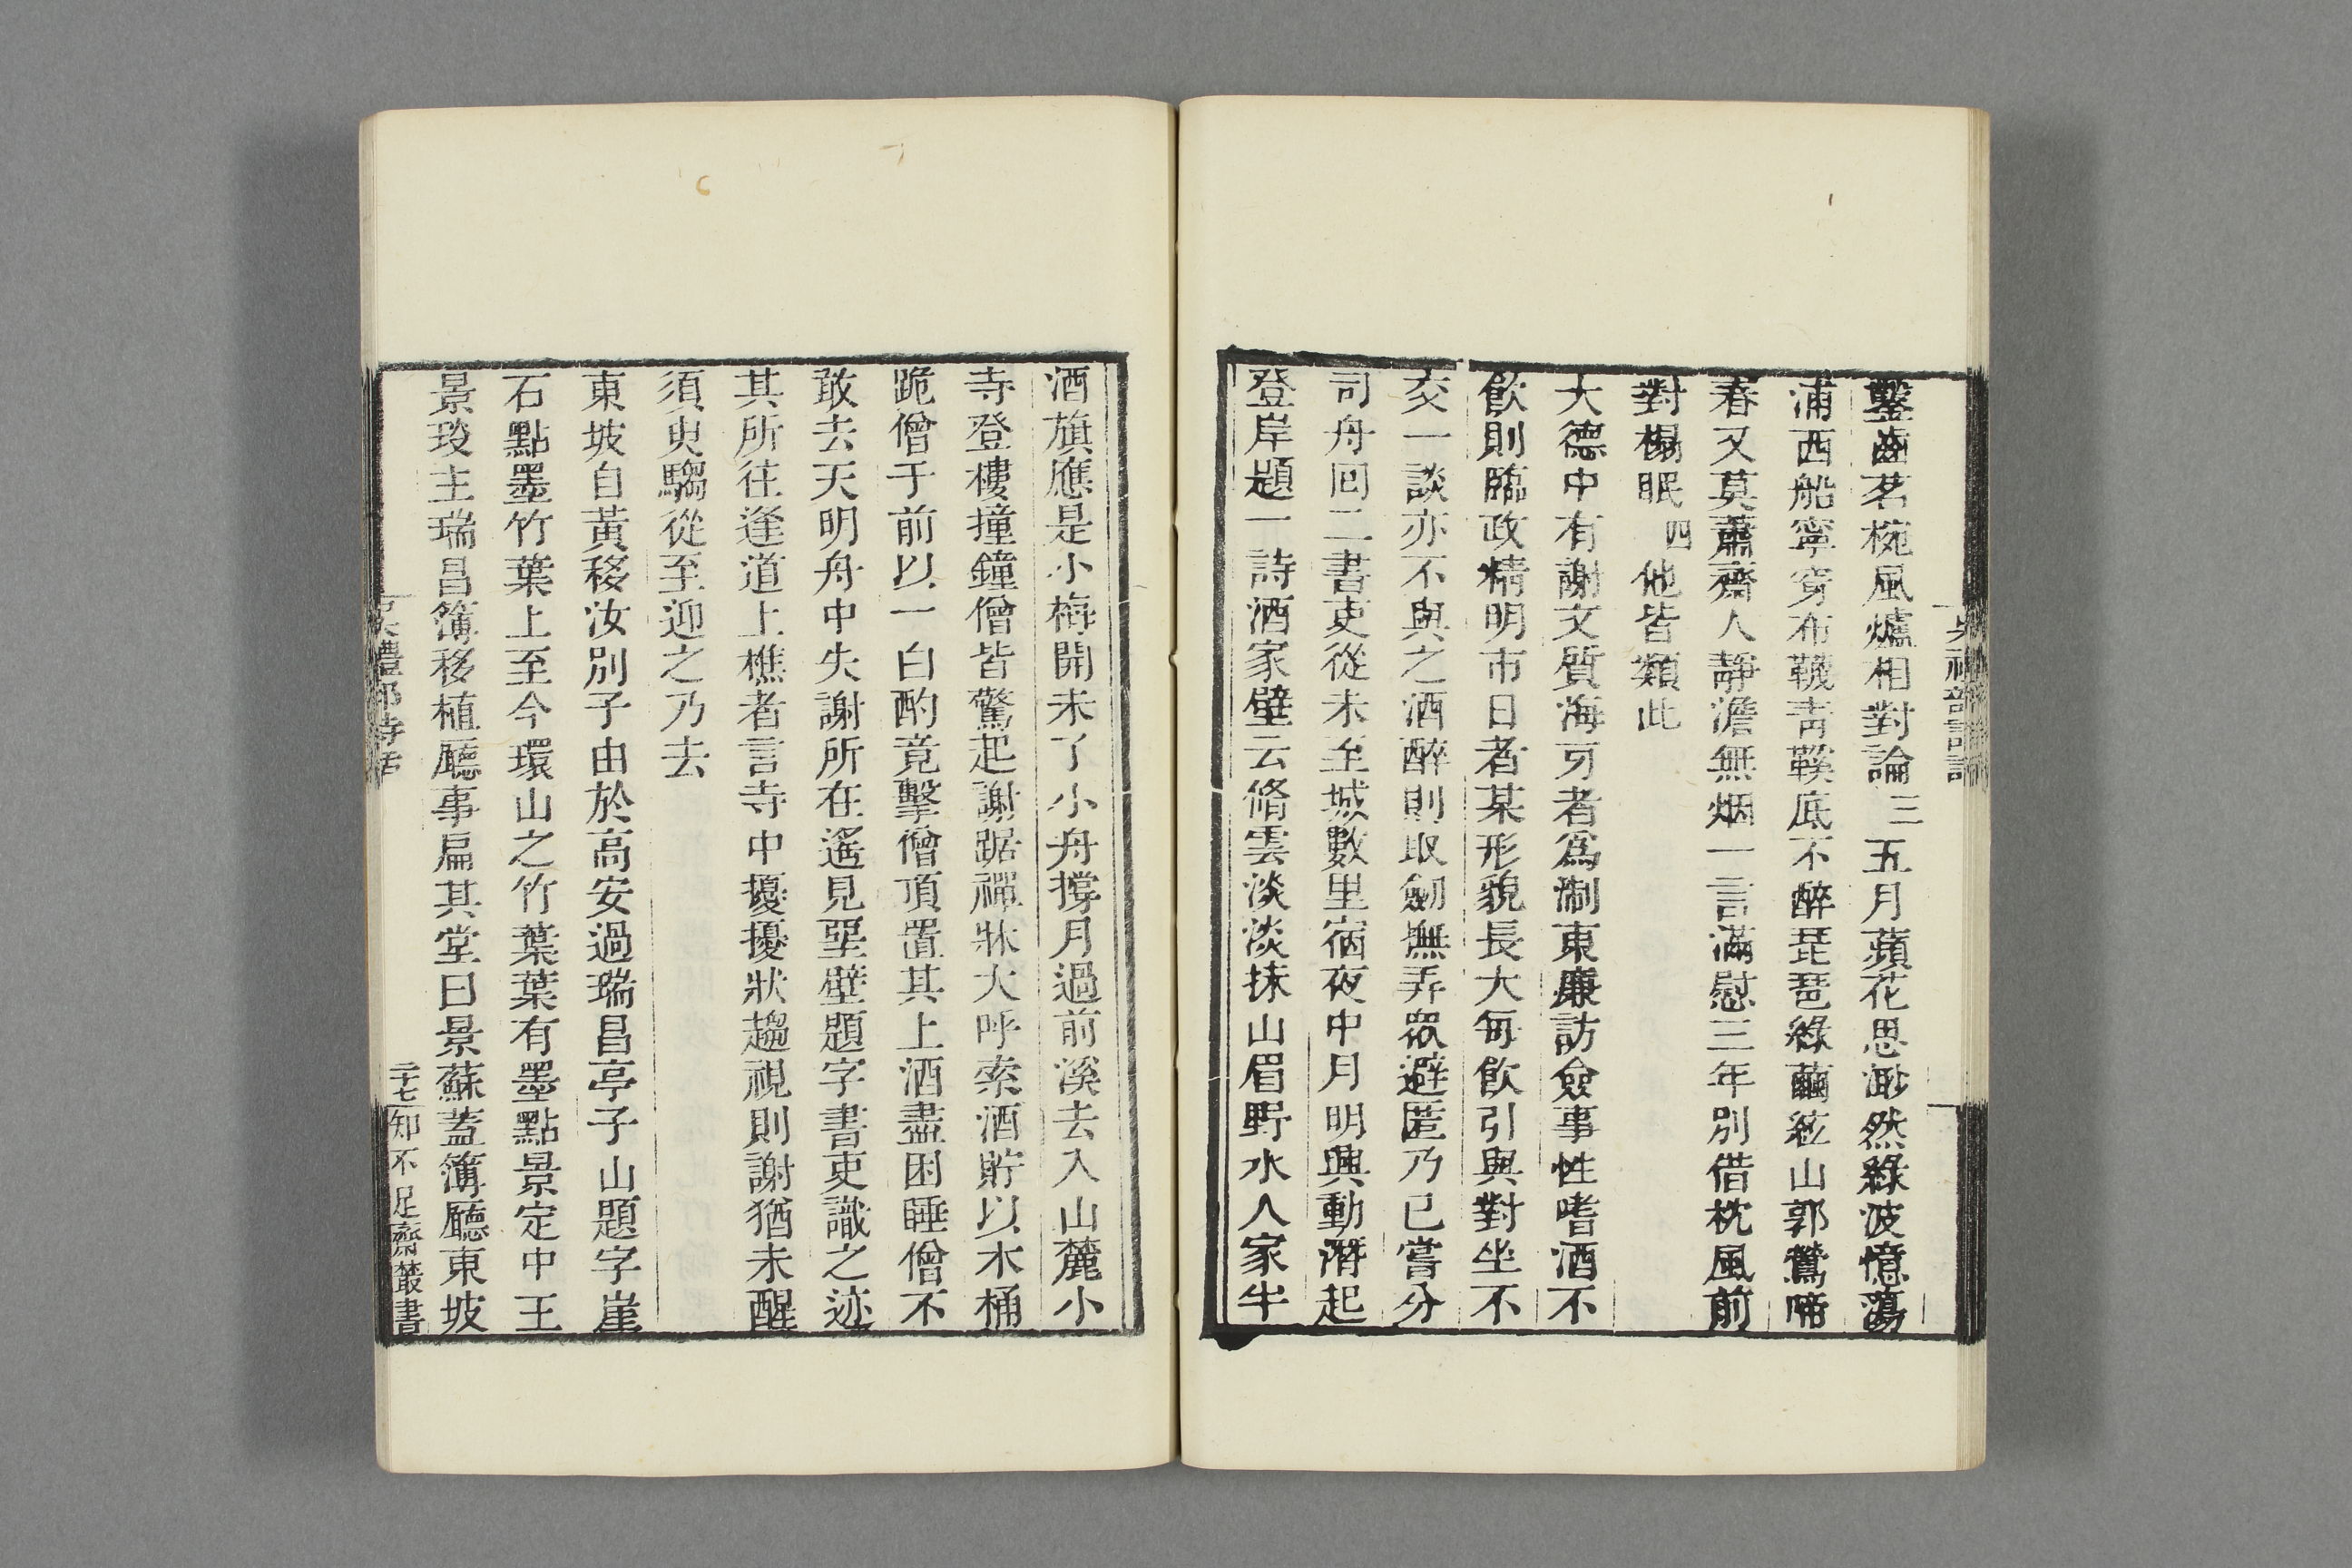 鑿齒茗椀風爐相對論三五月蘋花思渺然綠波憶蕩
浦西船寧穿布韈靑鞵底不醉琵琶綠繭絃山郭鶯啼
春又莫蕭齋人靜澹無烟一言滿慰三年別借枕風前
對榻眠四他皆類此
大德中有謝文質海牙者爲淛東廉訪僉事性嗜酒不
飮則臨政精明市日者某形貌長大每飮引與對坐不
交一談亦不與之酒醉則取劒撫弄眾避匿乃已嘗分
司舟回二書吏從未至城數里宿夜中月明興動潛起
登岸題一詩酒家壁云絛雲淡淡抹山眉野水人家半
酒旗應是小梅開未了小舟撐月過前溪去入山麓小
寺登樓撞鐘僧皆驚起謝踞禪牀大呼索酒貯以木桶
跪僧于前以一白酌竟擊僧頂置其上酒盡困睡僧不
敢去天明舟中失謝所在遙見堊壁題字書吏識之迹
其所往逢道上樵者言寺中擾擾狀趨視則謝猶未醒
須臾騶從至迎之乃去
東坡自黃移汝別子由於高安過瑞昌亭子山題字崖
石點墨竹葉上至今環山之竹葉葉有墨點景定中王
景琰主瑞昌簿移植廳事扁其堂曰景蘇蓋簿廳東坡
吳禮部詩話
二十七
知不足齋叢書